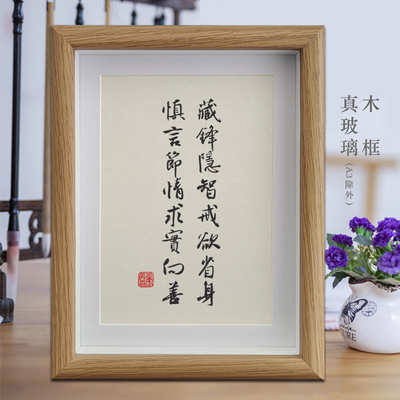 藏鋒隱智戒欲省身
慎言節情求實向善
木框
真玻璃
(A3除外)